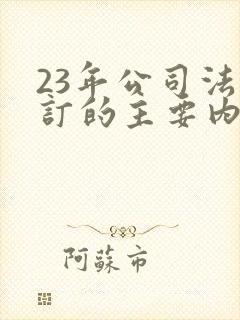 23年公司法
訂的主要內
阿蘇市